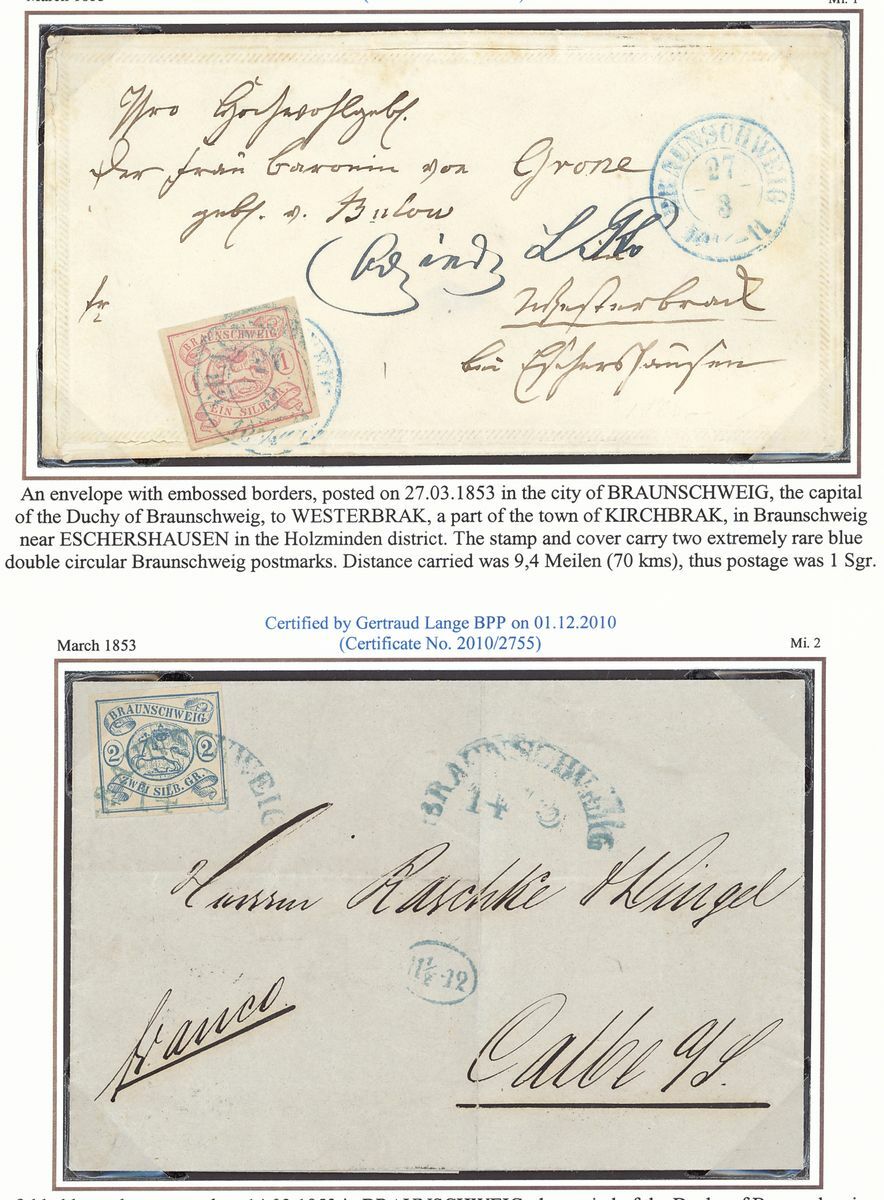 March 1853
Mi. 1
Ihro Hochwohlgeb.
der Frau Baronin von Grone
geb. v. Bulow
BRAUNSCHWEIG
27
3
fr
Westerbrack
bei Eschershausen
BRAUNSCHWEIG
1 1
EIN SILB.
An envelope with embossed borders, posted on 27.03.1853 in the city of BRAUNSCHWEIG, the capital
of the Duchy of Braunschweig, to WESTERBRAK, a part of the town of KIRCHBRAK, in Braunschweig
near ESCHERSHAUSEN in the Holzminden district. The stamp and cover carry two extremely rare blue
double circular Braunschweig postmarks. Distance carried was 9,4 Meilen (70 kms), thus postage was 1 Sgr.
Certified by Gertraud Lange BPP on 01.12.2010
March 1853
(Certificate No. 2010/2755)
Mi. 2
BRAUNSCHWEIG
2 2
ZWEI SILB. GR.
BRAUNSCHWEIG
14 3
Herren Raschke & Dingel
11½-12
franco
Calbe a/S.